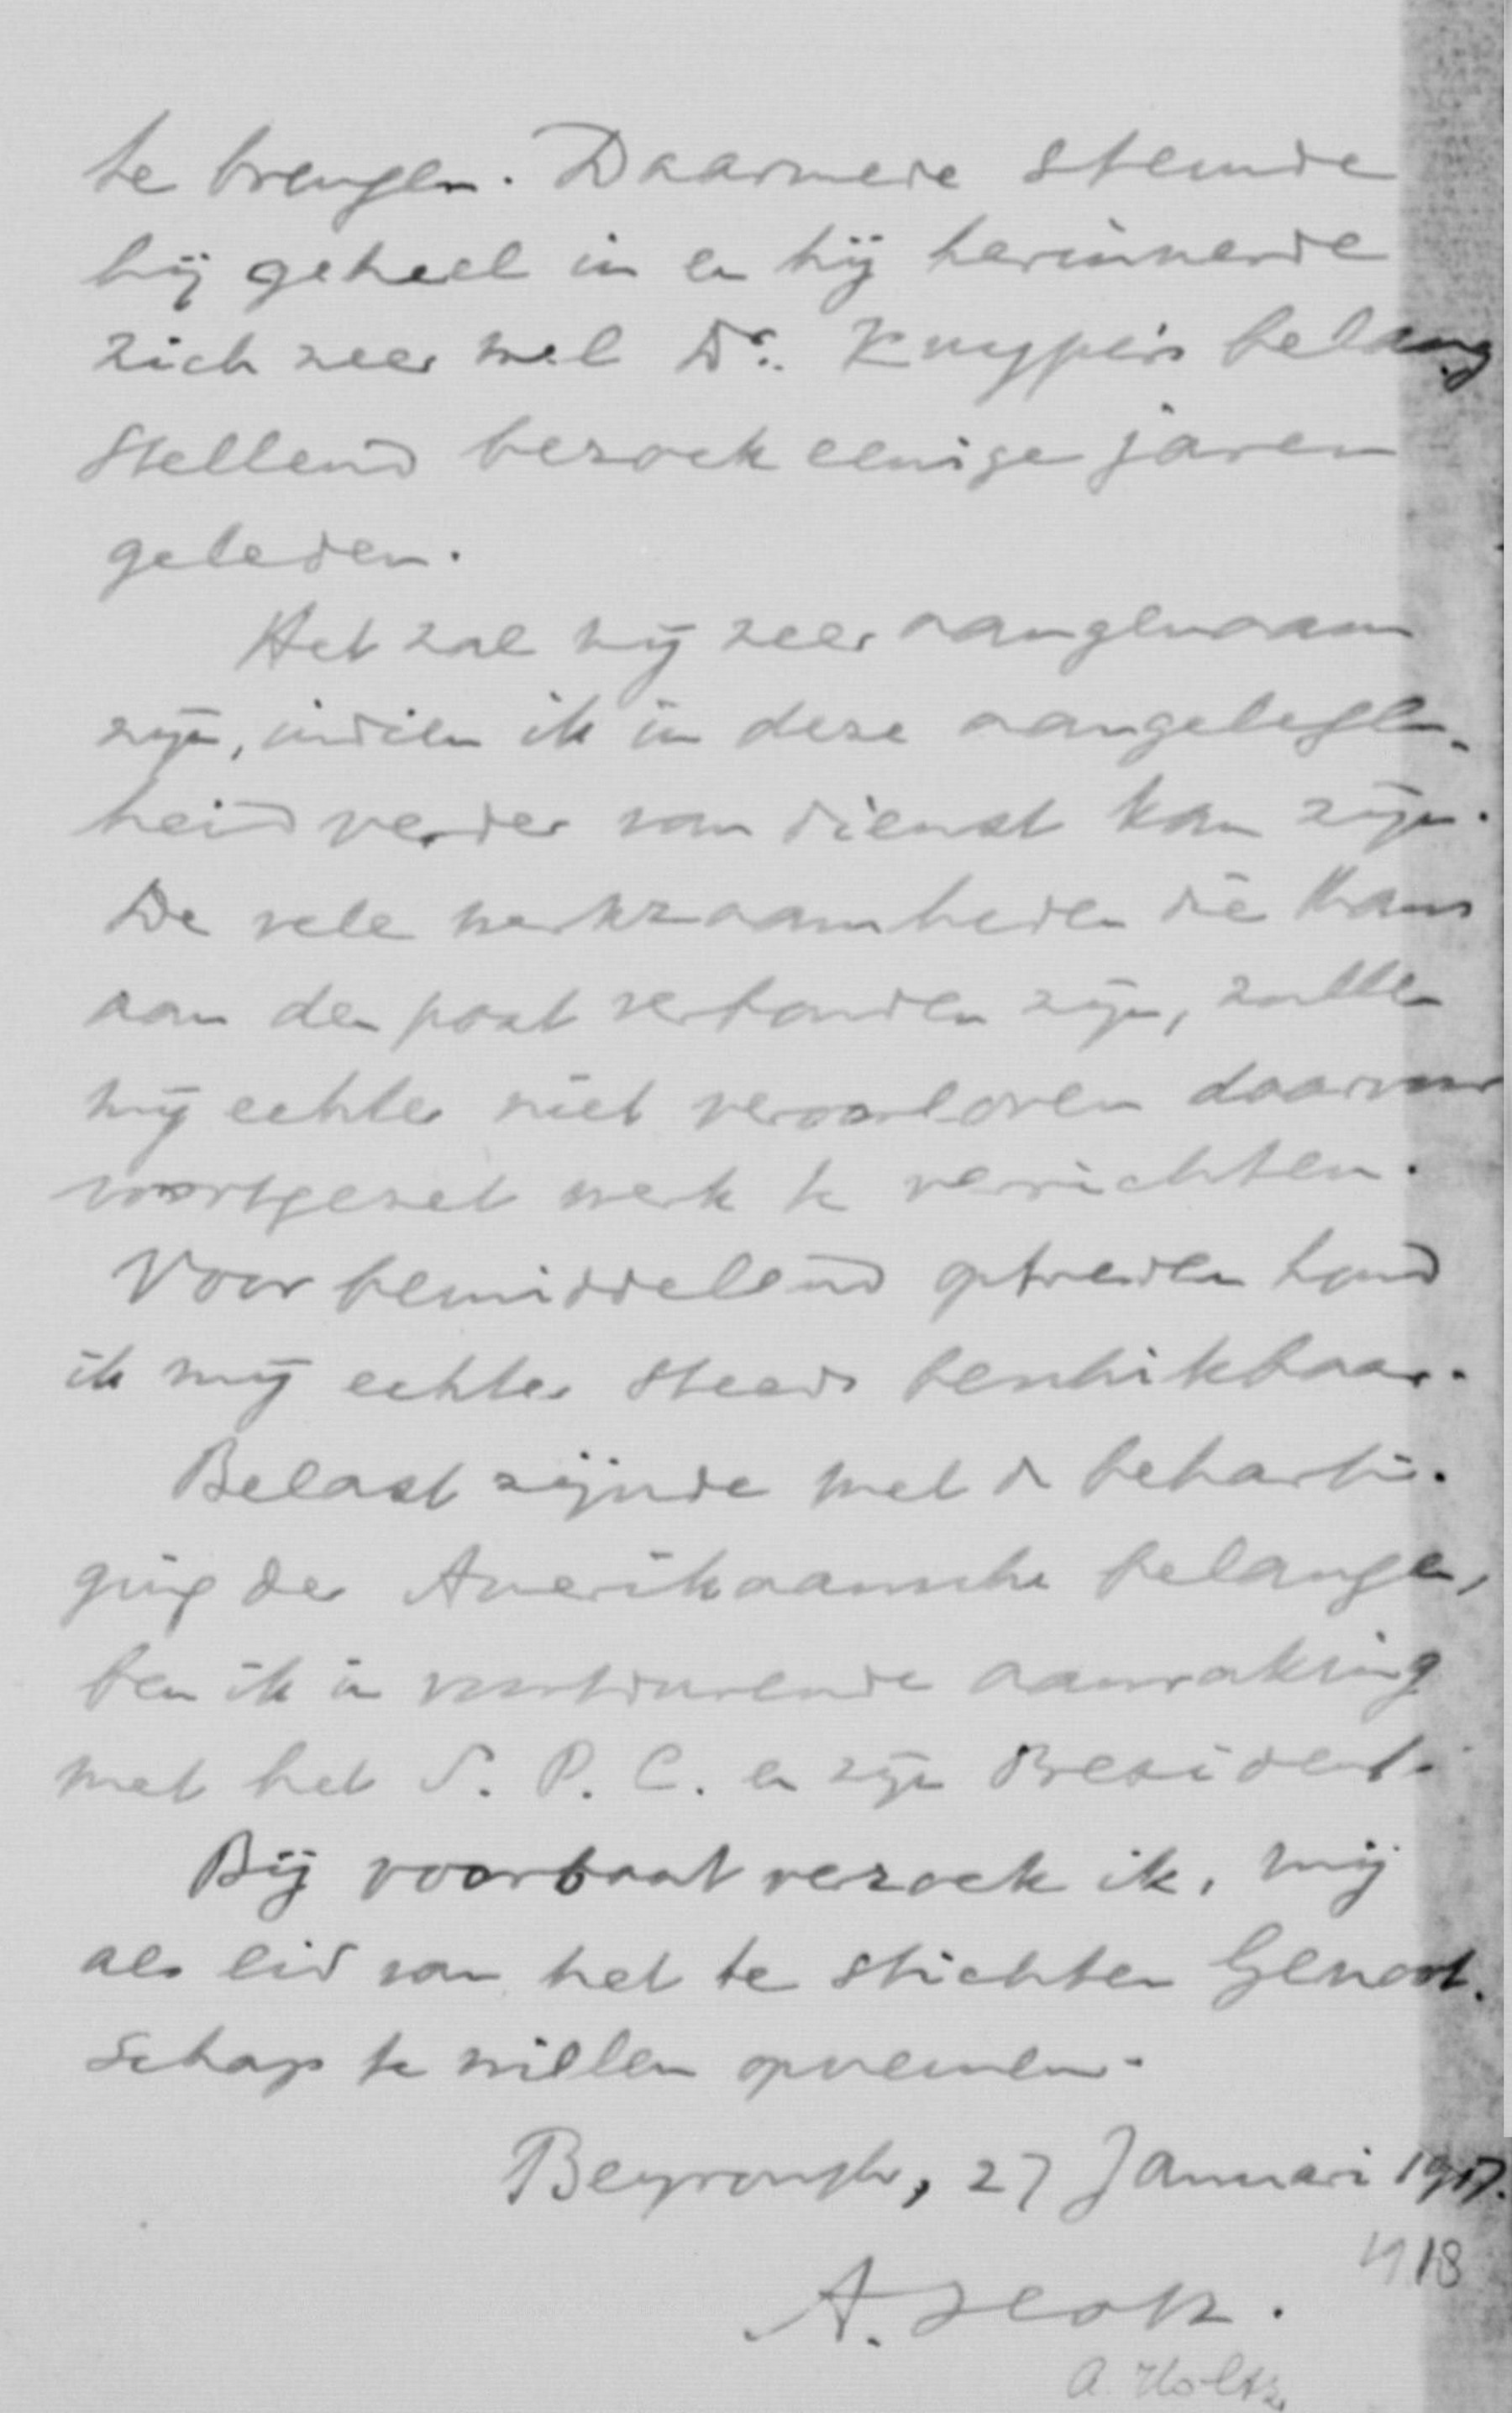 te brengen. Daarmede stemde
hij geheel in en hij herinnerde
zich zeer wel Dr. Kuyper's belang
stellend bezoek eenige jaren
geleden.
Het zal mij zeer aangenaam
zijn, indien ik in deze aangelegen-
heid verder van dienst kan zijn.
De vele werkzaamheden die thans
aan den post verbonden zijn, zullen
mij echter niet veroorloven daarvoor
voortgezet werk te verrichten.
Voor bemiddelend optreden houd
ik mij echter steeds beschikbaar.
Belast zijnde met de beharti-
ging der Amerikaansche belangen,
ben ik in voortdurende aanraking
met het S. P. C. en zijn President.
Bij voorbaat verzoek ik, mij
als lid van het te stichten Genoot-
schap te willen opnemen.
Beyrouth, 27 Januari 1917.
18
A.
A. Holtz